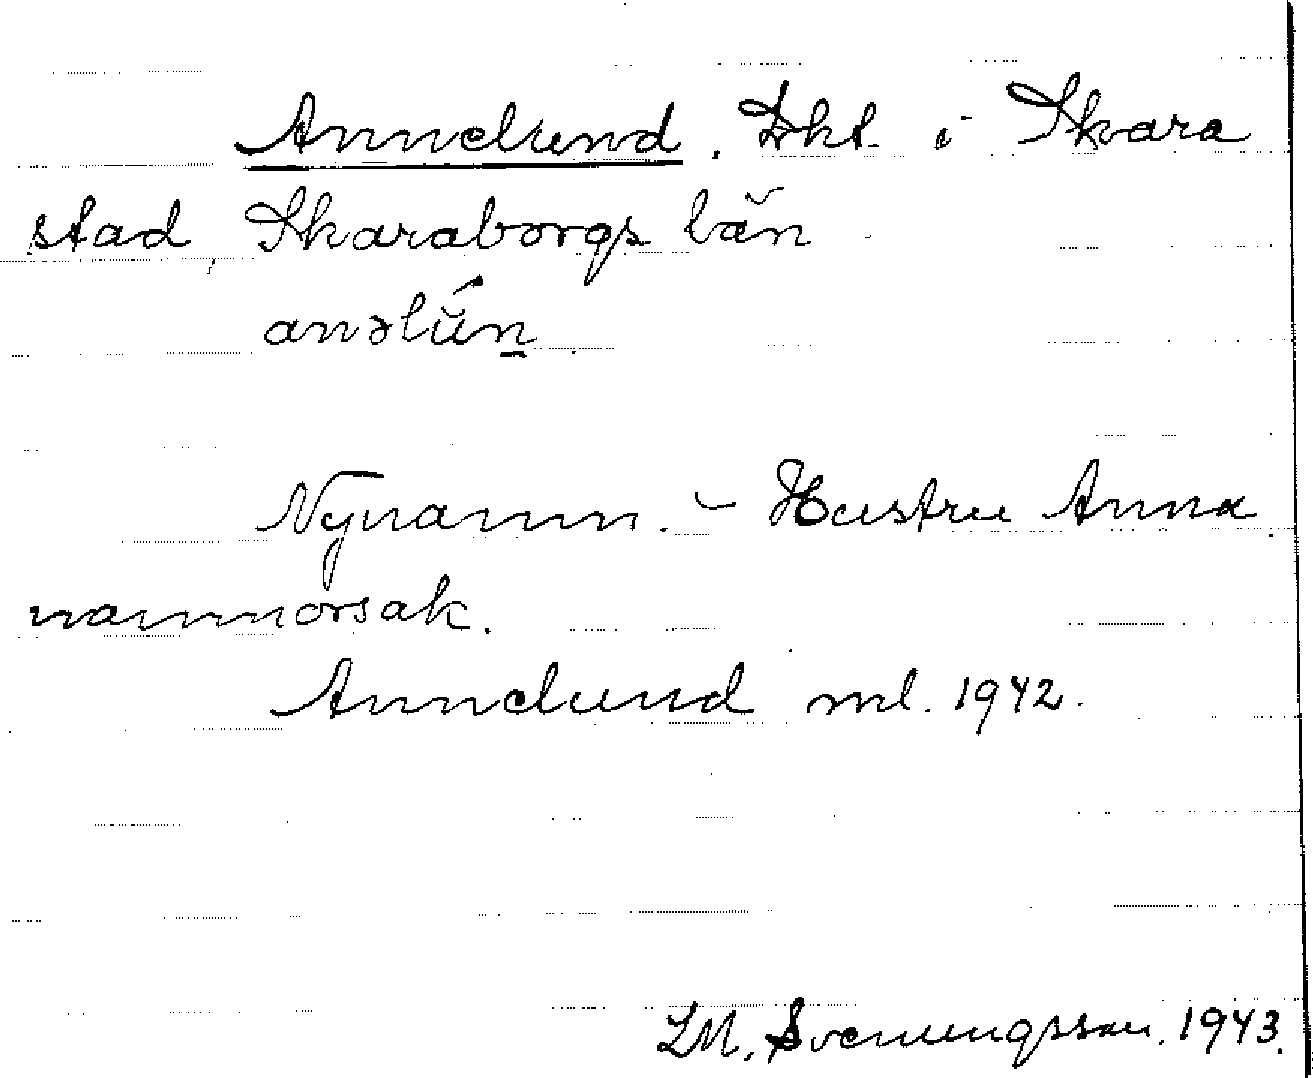 Annelund. Lht. i Skara
stad, Skaraborgs län
anəlún
Nynamn. – Hustru Anna
namnorsak.
Annelund ml. 1942.
LM. Svenungsson. 1943.